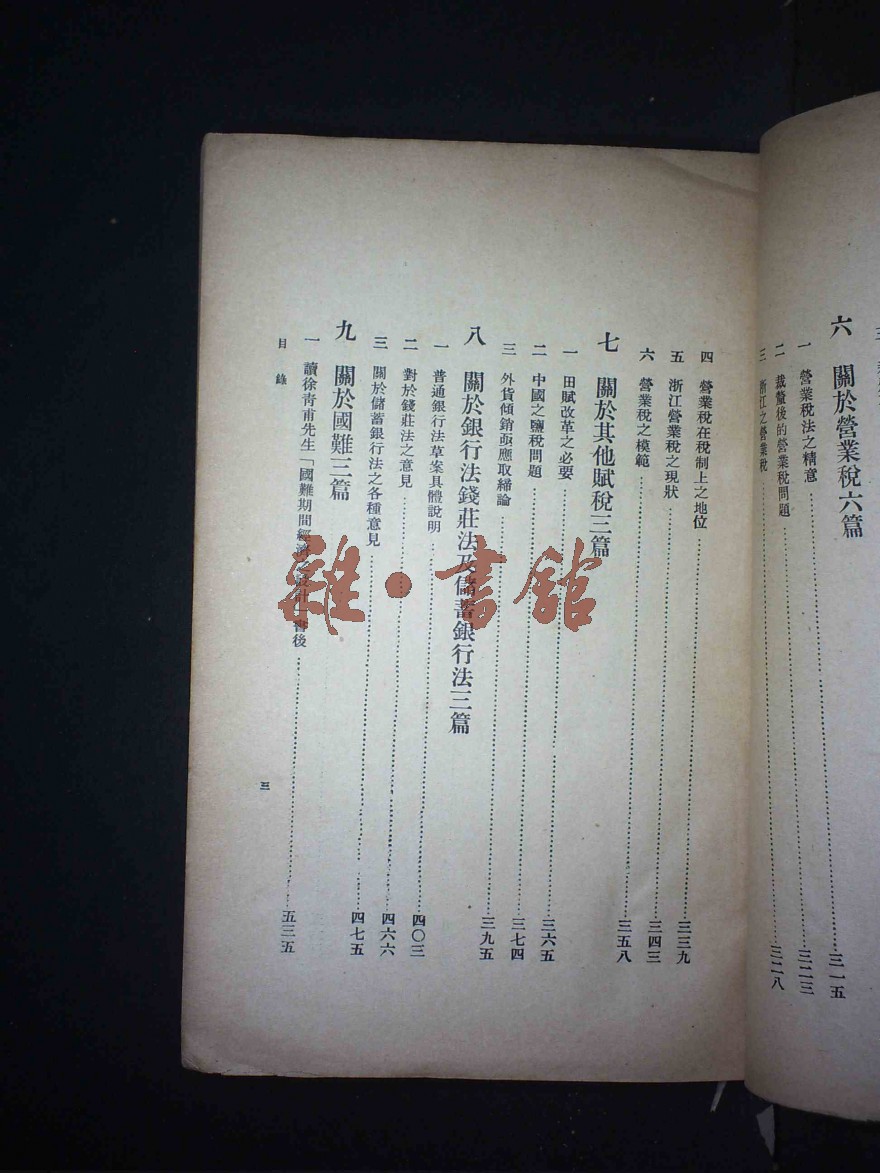 六 關於營業稅六篇
一 營業稅法之精意 三一五
二 裁釐後的營業稅問題 三二三
三 浙江之營業稅 三二八
四 營業稅在稅制上之地位 三三九
五 浙江營業稅之現狀 三四三
六 營業稅之模範 三五八
七 關於其他賦稅三篇
一 田賦改革之必要 三六五
二 中國之鹽稅問題 三七四
三 外貨傾銷亟應取締論 三九五
八 關於銀行法錢莊法及儲蓄銀行法三篇
一 普通銀行法草案具體說明 四〇三
二 對於錢莊法之意見 四六六
三 關於儲蓄銀行法之各種意見 四七五
九 關於國難三篇
一 讀徐青甫先生「國難期間經濟之設計」書後 五三五
目錄 三
雜·書館